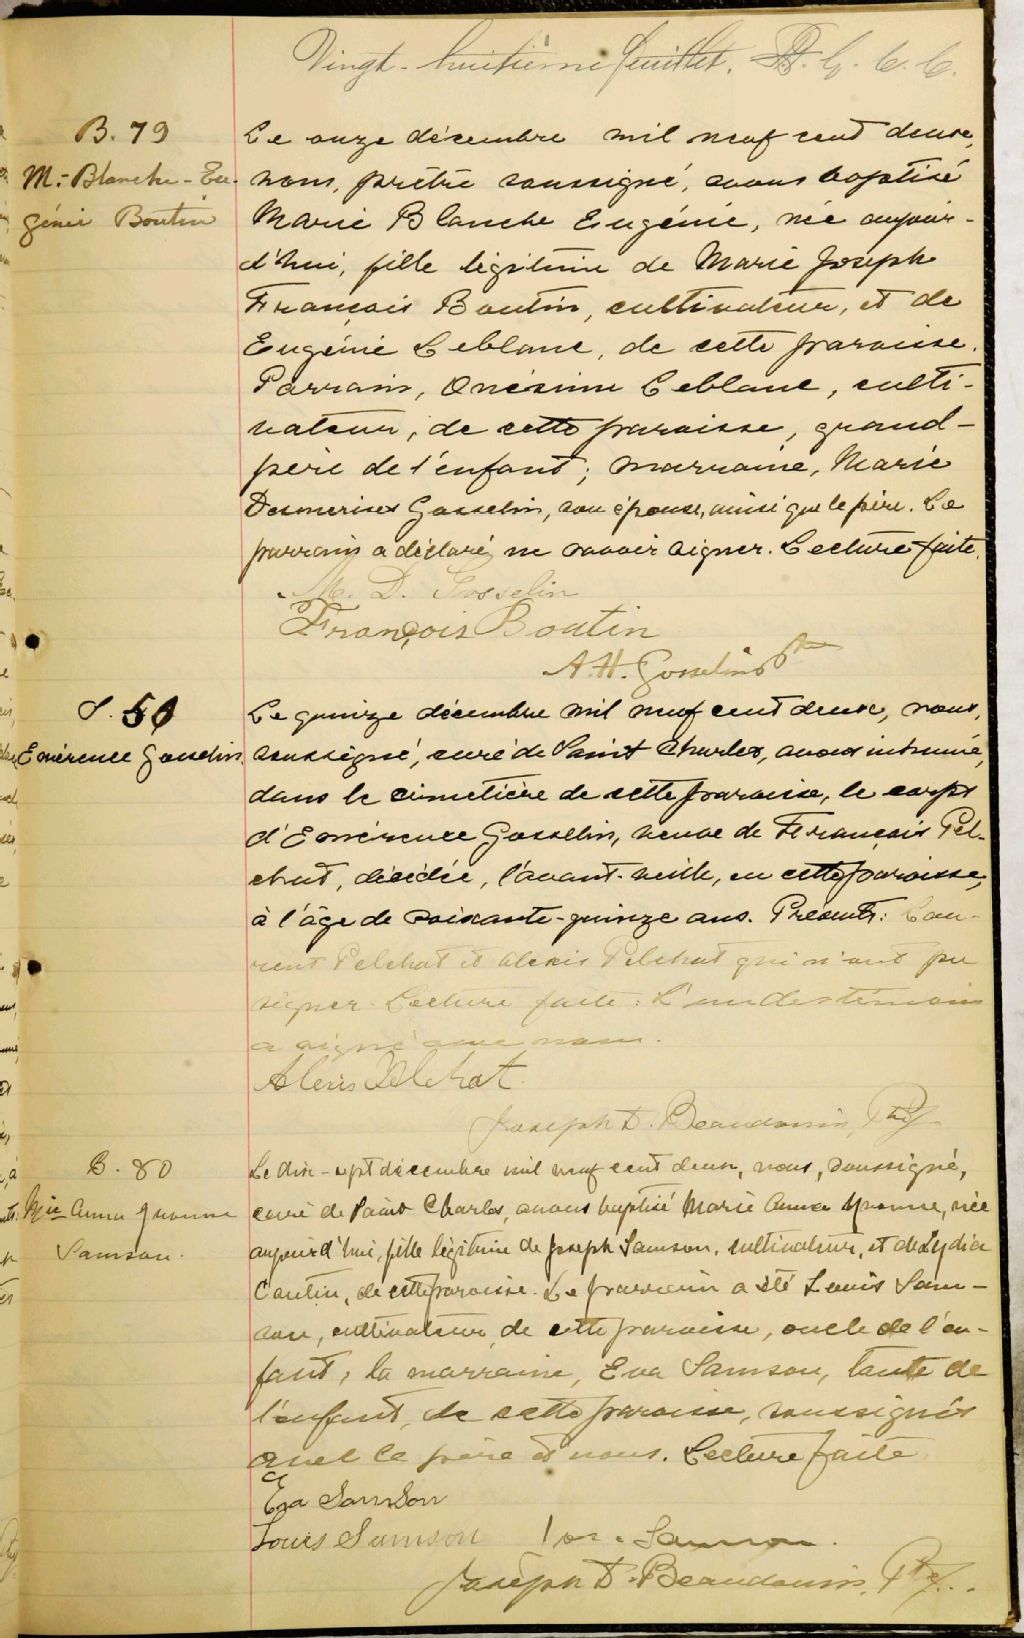 Vingt-huitième feuillet.
B. 79
M.-Blanche-Eu-
génie Boutin
Le onze décembre mil neuf cent deux,
nous, prêtre soussigné, avons baptisé
Marie Blanche Eugénie, née aujour-
d'hui, fille légitime de Marie Joseph
François Boutin, cultivateur, et de
Eugénie Leblanc, de cette paroisse.
Parrain, Onésime Leblanc, culti-
vateur, de cette paroisse, grand-
père de l'enfant; marraine, Marie
Desmerises Gosselin, son épouse, ainsi que le père. Le
parrain a déclaré ne savoir signer. Lecture faite.
M. D. Gosselin
François Boutin
A. H. Gosselin Ptre
S. 50
Emérence Gosselin
Le quinze décembre mil neuf cent deux, nous,
soussigné, curé de Saint Charles, avons inhumé,
dans le cimetière de cette paroisse, le corps
d'Emérence Gosselin, veuve de François Pel-
chat, décédée, l'avant-veille, en cette paroisse,
à l'âge de soixante-quinze ans. Présents: Lau-
rent Pelchat et Alexis Pelchat qui n'ont pu
signer. Lecture faite. L'un des témoins
a signé avec nous.
Alexis Pelchat.
Joseph D. Beaudoin, Ptre
B. 80
Mie Anna Yvonne
Samson.
Le dix-sept décembre mil neuf cent deux, nous, soussigné,
curé de Saint Charles, avons baptisé Marie Anna Yvonne, née
aujourd'hui, fille légitime de Joseph Samson, cultivateur, et de Lydia
Cantin, de cette paroisse. Le parrain a été Louis Sam-
son, cultivateur, de cette paroisse, oncle de l'en-
fant; la marraine, Eva Samson, tante de
l'enfant, de cette paroisse, soussignés
avec le père et nous. Lecture faite.
Eva Samson
Louis Samson Jos. Samson.
Joseph D. Beaudoin, Ptre.